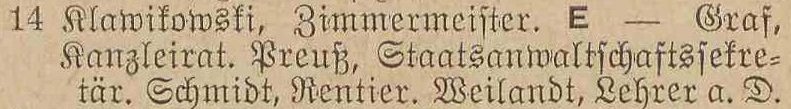 14 Klawikowski, Zimmermeister. E — Graf,
Kanzleirat. Preuß, Staatsanwaltschaftssekre-
tär. Schmidt, Rentier. Weilandt, Lehrer a. D.